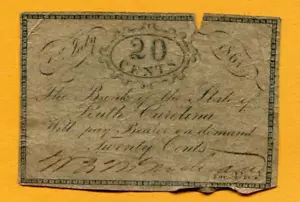 July
20
CENTS
1861
The Bank of the State of
South Carolina
Will pay Bearer on demand
Twenty Cents